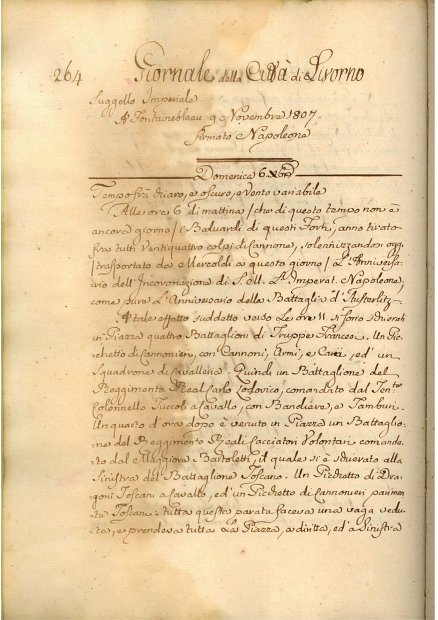 264 Giornale della Città di Livorno
Suggello Imperiale
A Fontainebleau 9 Novembre 1807
firmato Napoleone
Domenica 6 Xbre
Tempo frà chiaro, e oscuro, e Vento variabile
Alle ore 6 di mattina / che di questo tempo non è
ancora giorno / i Baluardi di questi Forti, anno tirato
frà tutti Ventiquattro colpi di Cannone, solennizzando oggi
/ trasportato da Mercoldi a questo giorno / L'Anniversa-
rio dell'Incoronazione di S. M. L' Imperat. Napoleone,
come pure L'Anniversario della Battaglia d'Austerlitz
A tale effetto suddetto verso Le ore 11 si sono schierati
in Piazza quattro Battaglioni di Truppe Francesi. Un Pic-
chetto di Cannonieri, con Cannoni, Armi, e ed' un
Squadrone di Cavalleria. Quindi un Battaglione del
Reggimento Real Carlo Lodovico, comandato dal Ten.te
Colonnello Tuccoli a Cavallo, con Bandiere, e Tamburi.
Un quarto d'ora dopo è venuto in Piazza un Battaglio-
ne del Reggimento Reali Cacciatori Volontari comanda-
to dal Maggiore Bartoletti, il quale si è schierato alla
Sinistra del Battaglione Toscano. Un Picchetto di Dra-
goni Toscani a Cavallo, ed' un Picchetto di Cannonieri parimen-
te Toscani: tutta questa parata faceva una vaga vedu-
ta, e prendeva tutta La Piazza, a diritta, ed' a Sinistra